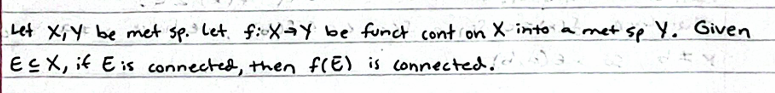 Let X,Y be met sp. Let f: X→Y be funct cont on X into a met sp Y. Given
E⊆X, if E is connected, then f(E) is connected.